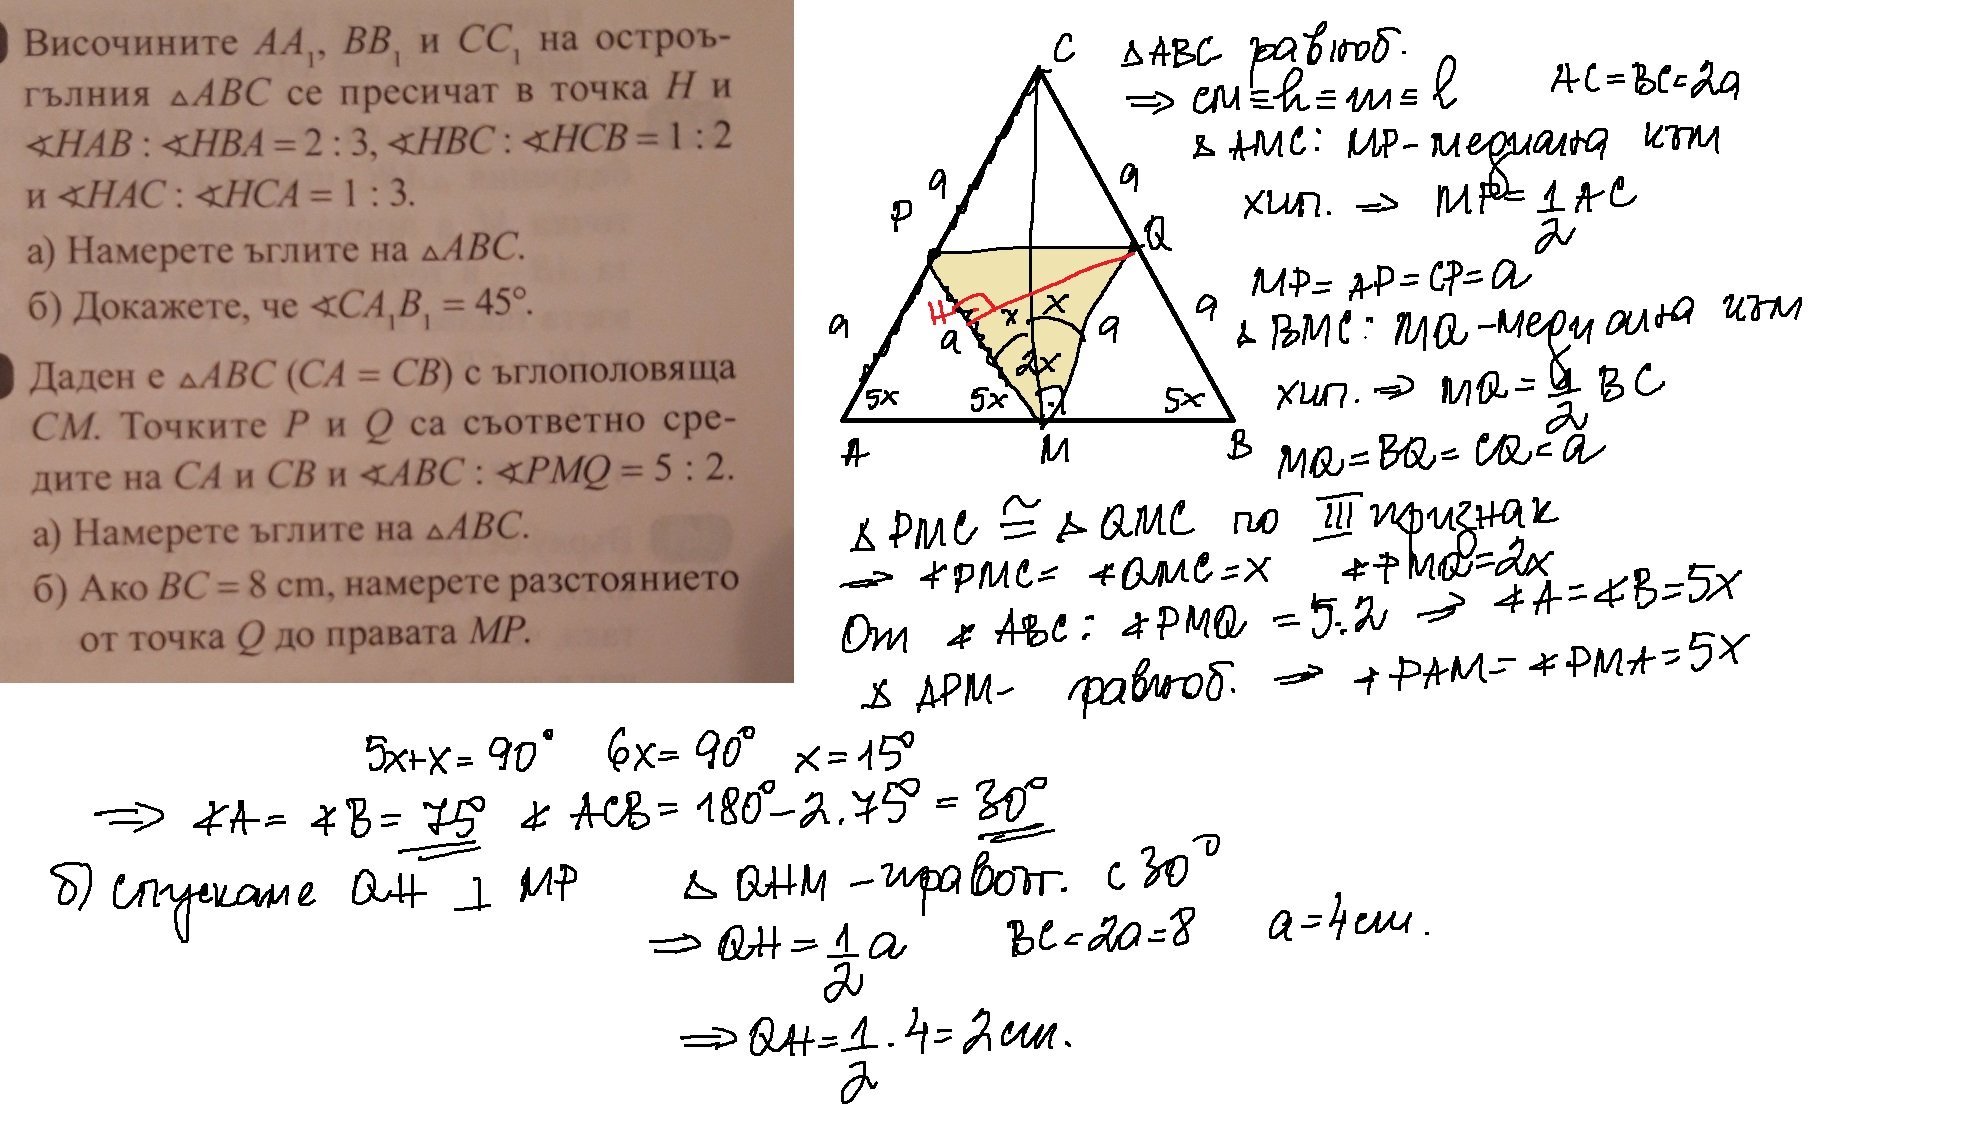 Височините AA₁, BB₁ и CC₁ на остроъ-
гълния △ABC се пресичат в точка H и
∢HAB : ∢HBA = 2 : 3, ∢HBC : ∢HCB = 1 : 2
и ∢HAC : ∢HCA = 1 : 3.
а) Намерете ъглите на △ABC.
б) Докажете, че ∢CA₁B₁ = 45°.
Даден е △ABC (CA = CB) с ъглополовяща
CM. Точките P и Q са съответно сре-
дите на CA и CB и ∢ABC : ∢PMQ = 5 : 2.
а) Намерете ъглите на △ABC.
б) Ако BC = 8 cm, намерете разстоянието
от точка Q до правата MP.
C
a
a
P
Q
H
x
x
a
a
a
a
2x
5x
5x
5x
A
M
B
△ABC равноб.
⇒ CM ≡ h ≡ m ≡ l
AC = BC = 2a
△AMC: MP - медиана към
хип. ⇒ MP = 1/2 AC
MP = AP = CP = a
△BMC: MQ - медиана към
хип. ⇒ MQ = 1/2 BC
MQ = BQ = CQ = a
△PMC ≅ △QMC по III признак
⇒ ∢PMC = ∢QMC = x ∢PMQ = 2x
От ∢ABC : ∢PMQ = 5:2 ⇒ ∢A = ∢B = 5x
△APM - равноб. ⇒ ∢PAM = ∢PMA = 5x
5x + x = 90° 6x = 90° x = 15°
⇒ ∢A = ∢B = 75° ∢ACB = 180° - 2.75° = 30°
б) Спускаме QH ⊥ MP △QHM - правоъг. с 30°
⇒ QH = 1/2 a BC = 2a = 8 a = 4cm.
⇒ QH = 1/2 . 4 = 2cm.